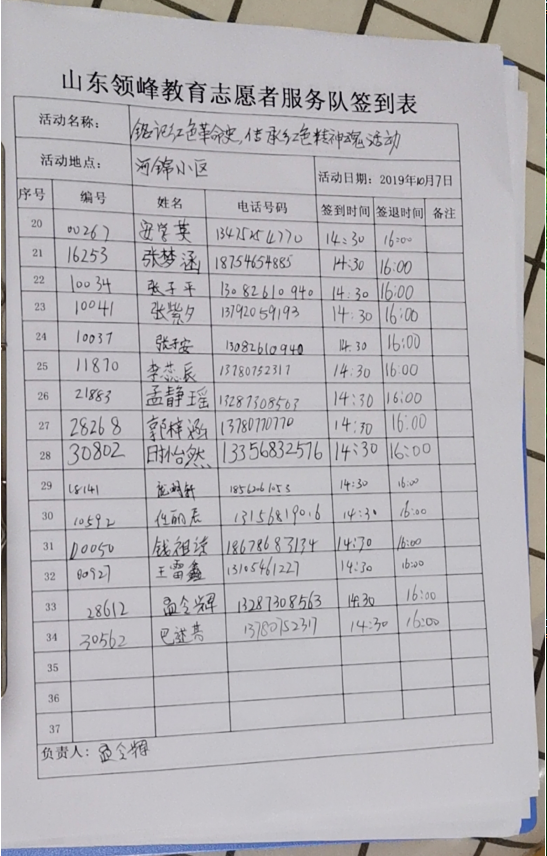 山东领峰教育志愿者服务队签到表
活动名称： 铭记红色革命史,传承红色精神魂活动
活动地点： 河锦小区 活动日期：2019年10月7日
序号 编号 姓名 电话号码 签到时间 签退时间 备注
20 00267 安学英 13475254770 14:30 16:00
21 16253 张梦涵 18754654885 14:30 16:00
22 10034 张子平 13082610940 14:30 16:00
23 10041 张紫夕 13792059193 14:30 16:00
24 10037 张子安 13082610940 14:30 16:00
25 11870 李蕊辰 13780752317 14:30 16:00
26 21883 孟静瑶 13287308563 14:30 16:00
27 28268 郭梓涵 13780770770 14:30 16:00
28 30802 怡然 13356832576 14:30 16:00
29 18141 14:30 16:00
30 10592 任丽君 13156819016 14:30 16:00
31 00050 钱祖诗 18678683134 14:30 16:00
32 00927 王雷鑫 13105461227 14:30 16:00
33 28612 孟令辉 13287308563 14:30 16:00
34 30562 巴 13780752317 14:30 16:00
35
36
37
负责人：孟令辉